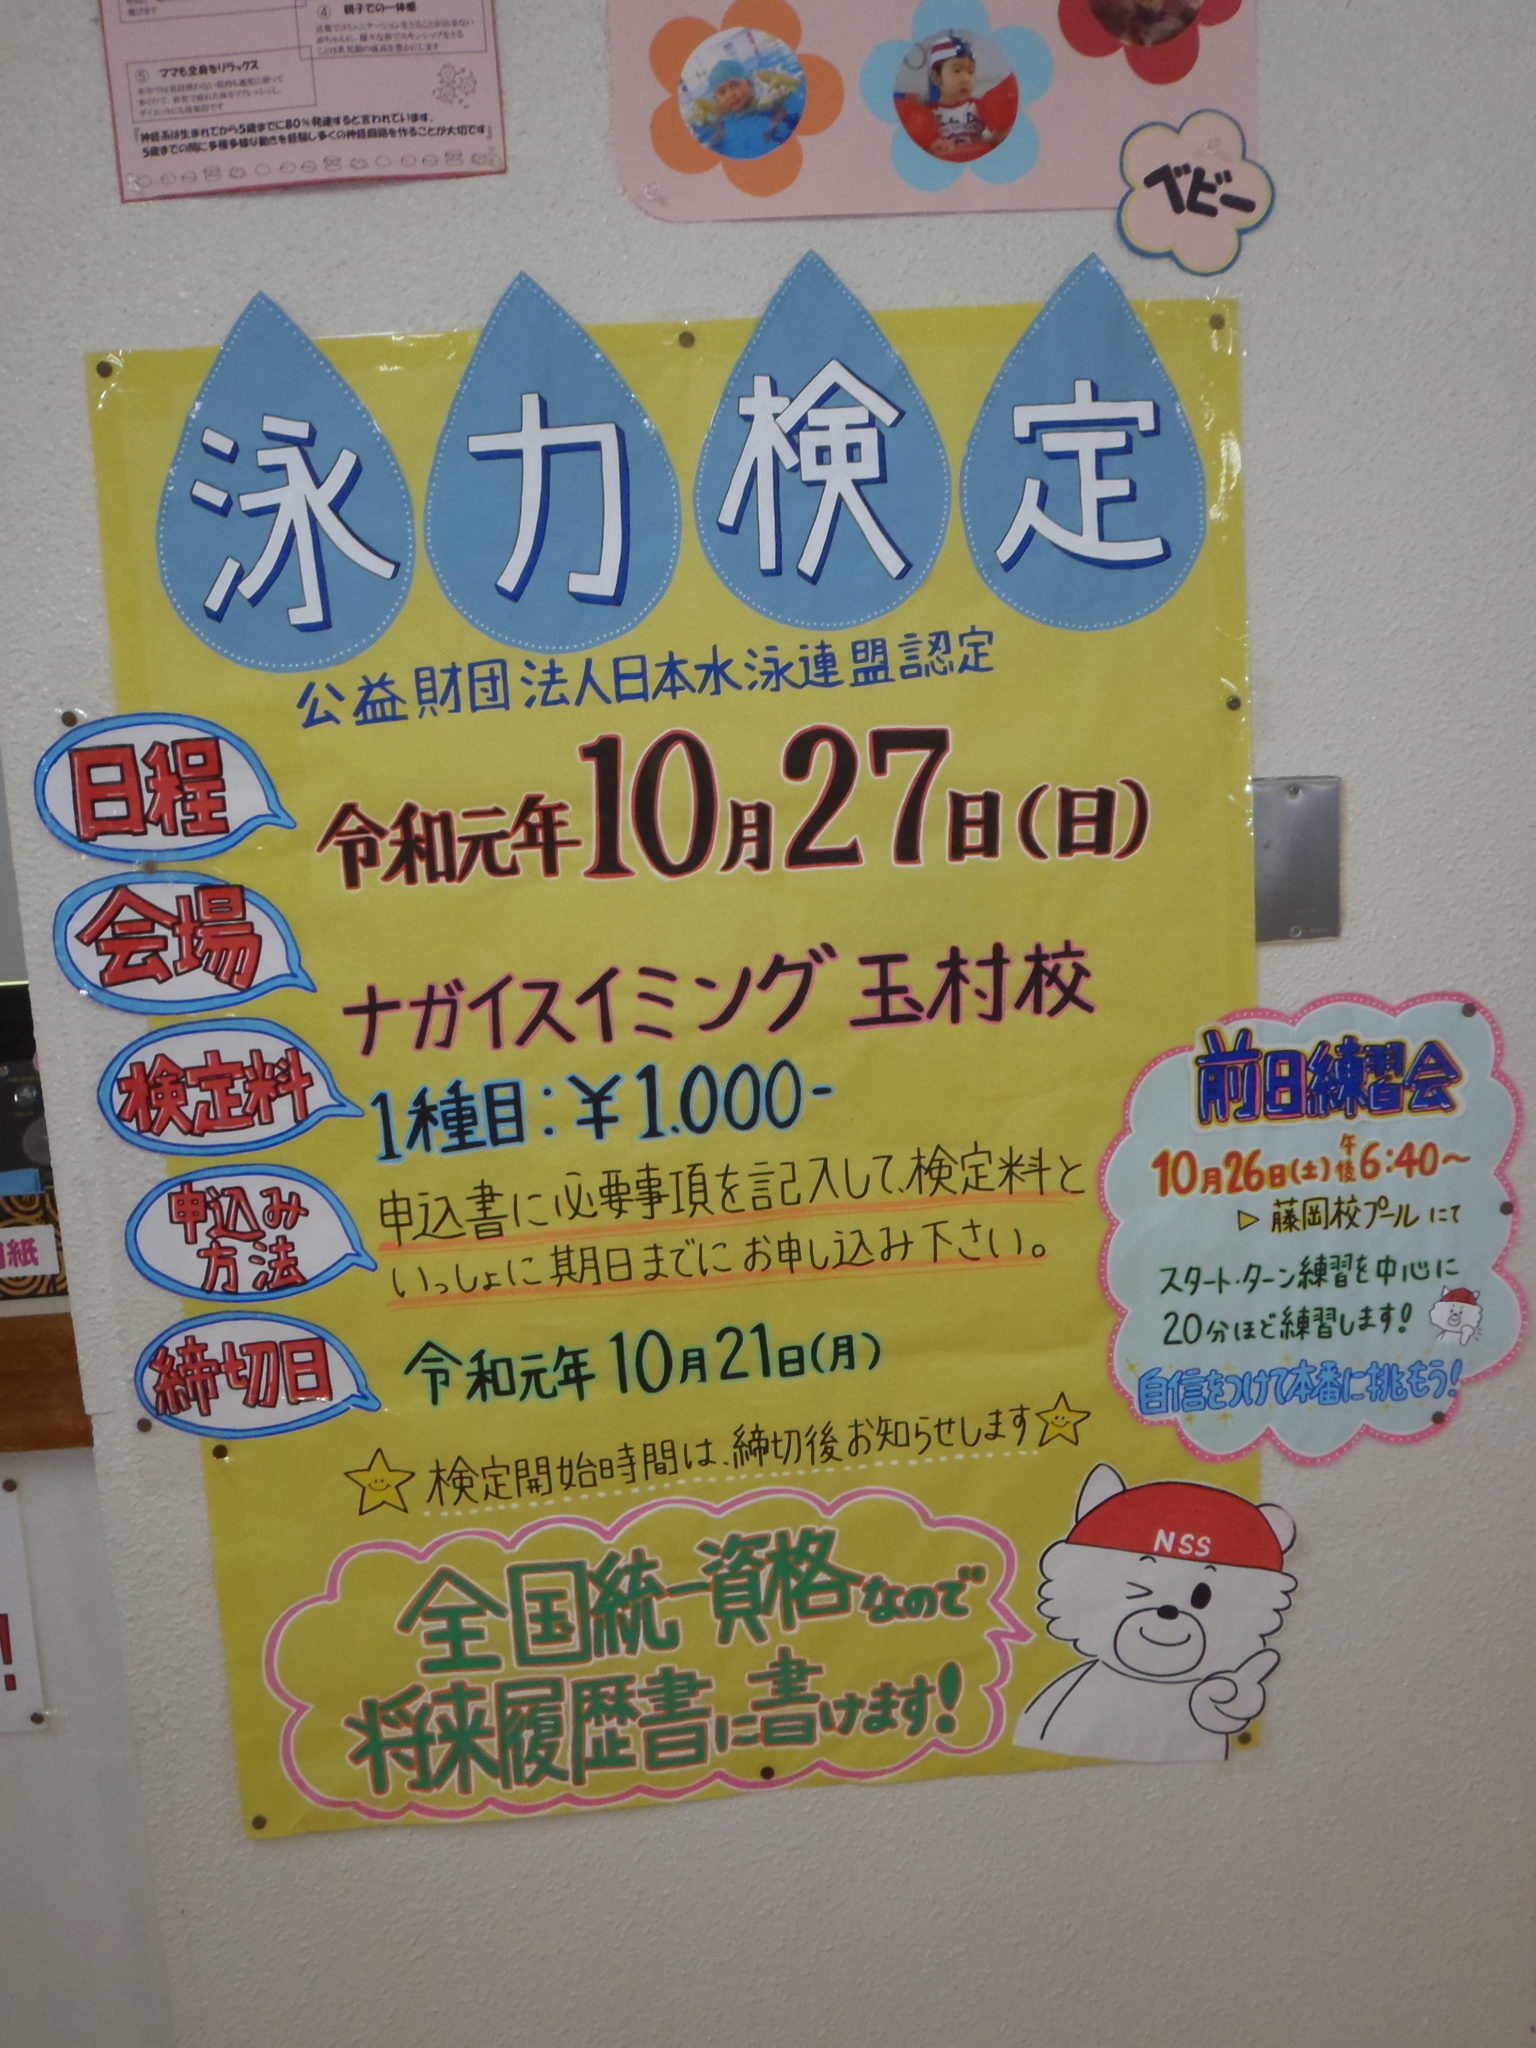 ④ 親子での一体感
⑤ ママも全身をリラックス
『神経系は生まれてから5歳までに80%発達すると言われています。
5歳までの間に多種多様な動きを経験し多くの神経回路を作ることが大切です』
ベビー
泳力検定
公益財団法人日本水泳連盟認定
日程
令和元年10月27日(日)
会場
ナガイスイミング 玉村校
検定料
1種目:¥1.000-
申込み
方法
申込書に必要事項を記入して、検定料と
いっしょに期日までにお申し込み下さい。
締切日
令和元年10月21日(月)
検定開始時間は、締切後お知らせします
全国統一資格なので
将来履歴書に書けます!
NSS
前日練習会
10月26日(土)午後6:40〜
▷ 藤岡校プールにて
スタート・ターン練習を中心に
20分ほど練習します!
自信をつけて本番に挑もう!
紙
!